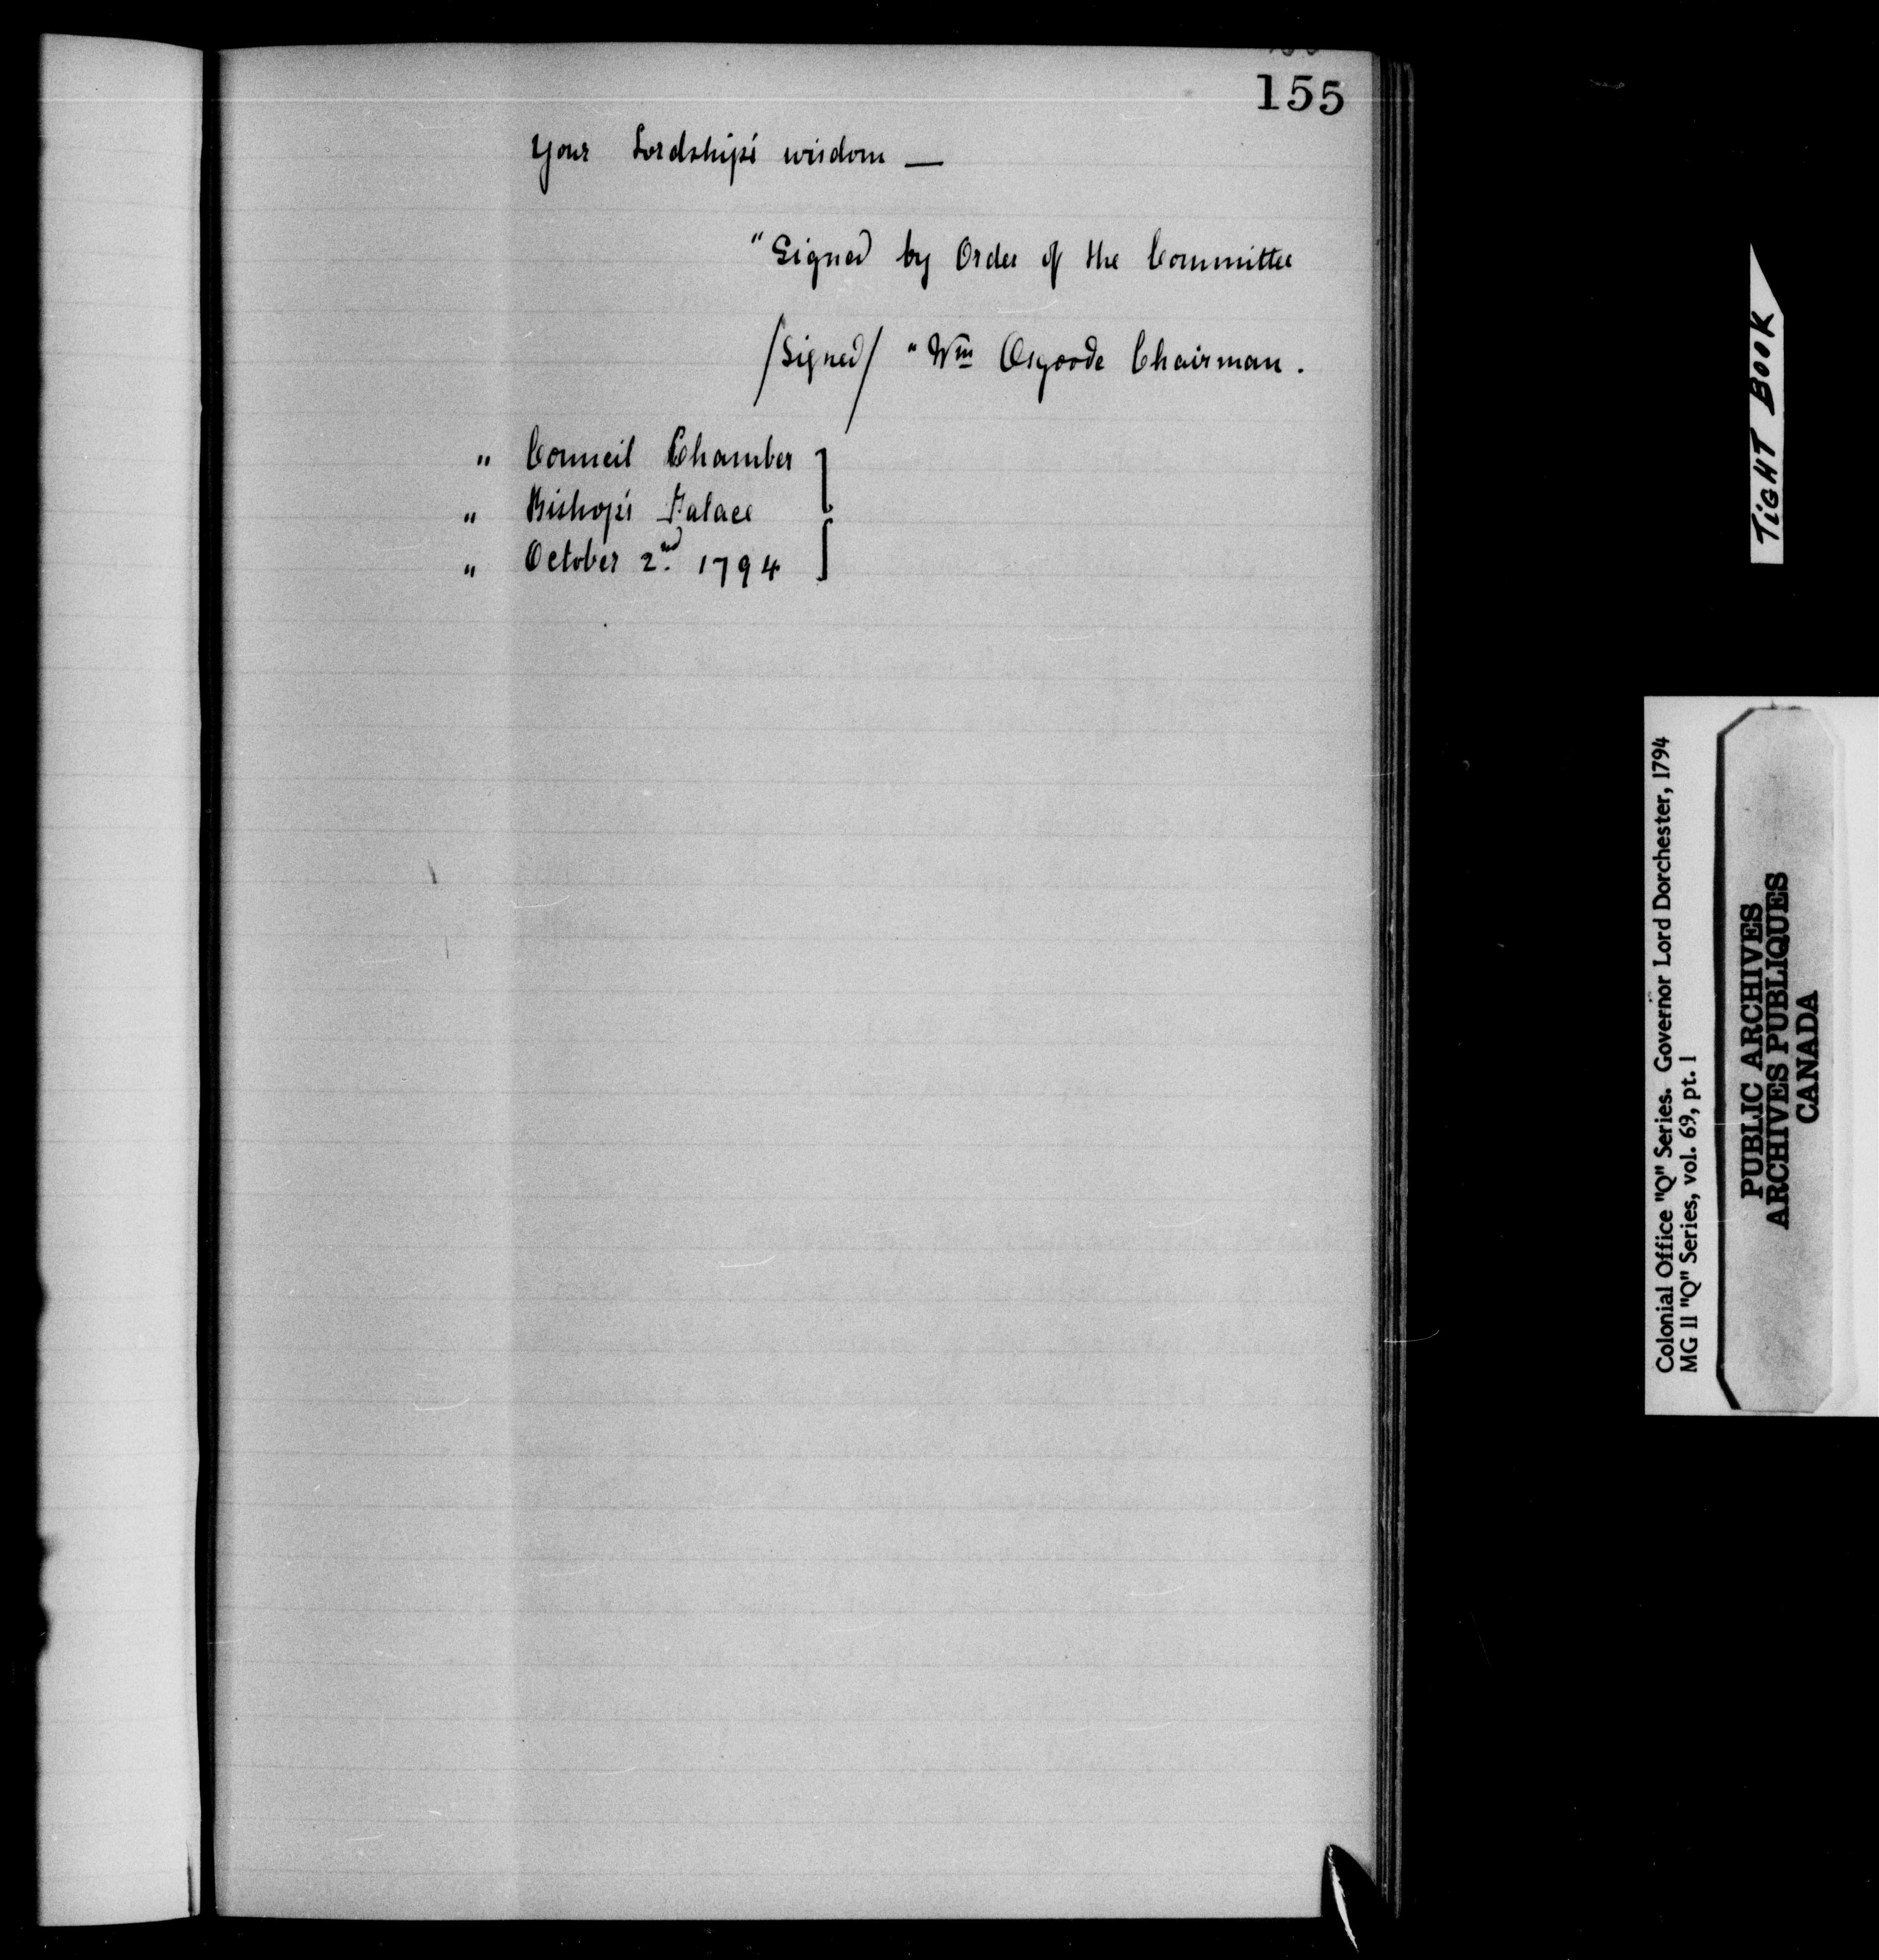 155
Your Lordship's wisdom —
"Signed by Order of the Committee
/Signed/ "Wm Osgoode Chairman.
" Council Chamber
" Bishop's Palace
" October 2nd. 1794
TIGHT BOOK
Colonial Office "Q" Series. Governor Lord Dorchester, 1794
MG 11 "Q" Series, vol. 69, pt. 1
PUBLIC ARCHIVES
ARCHIVES PUBLIQUES
CANADA